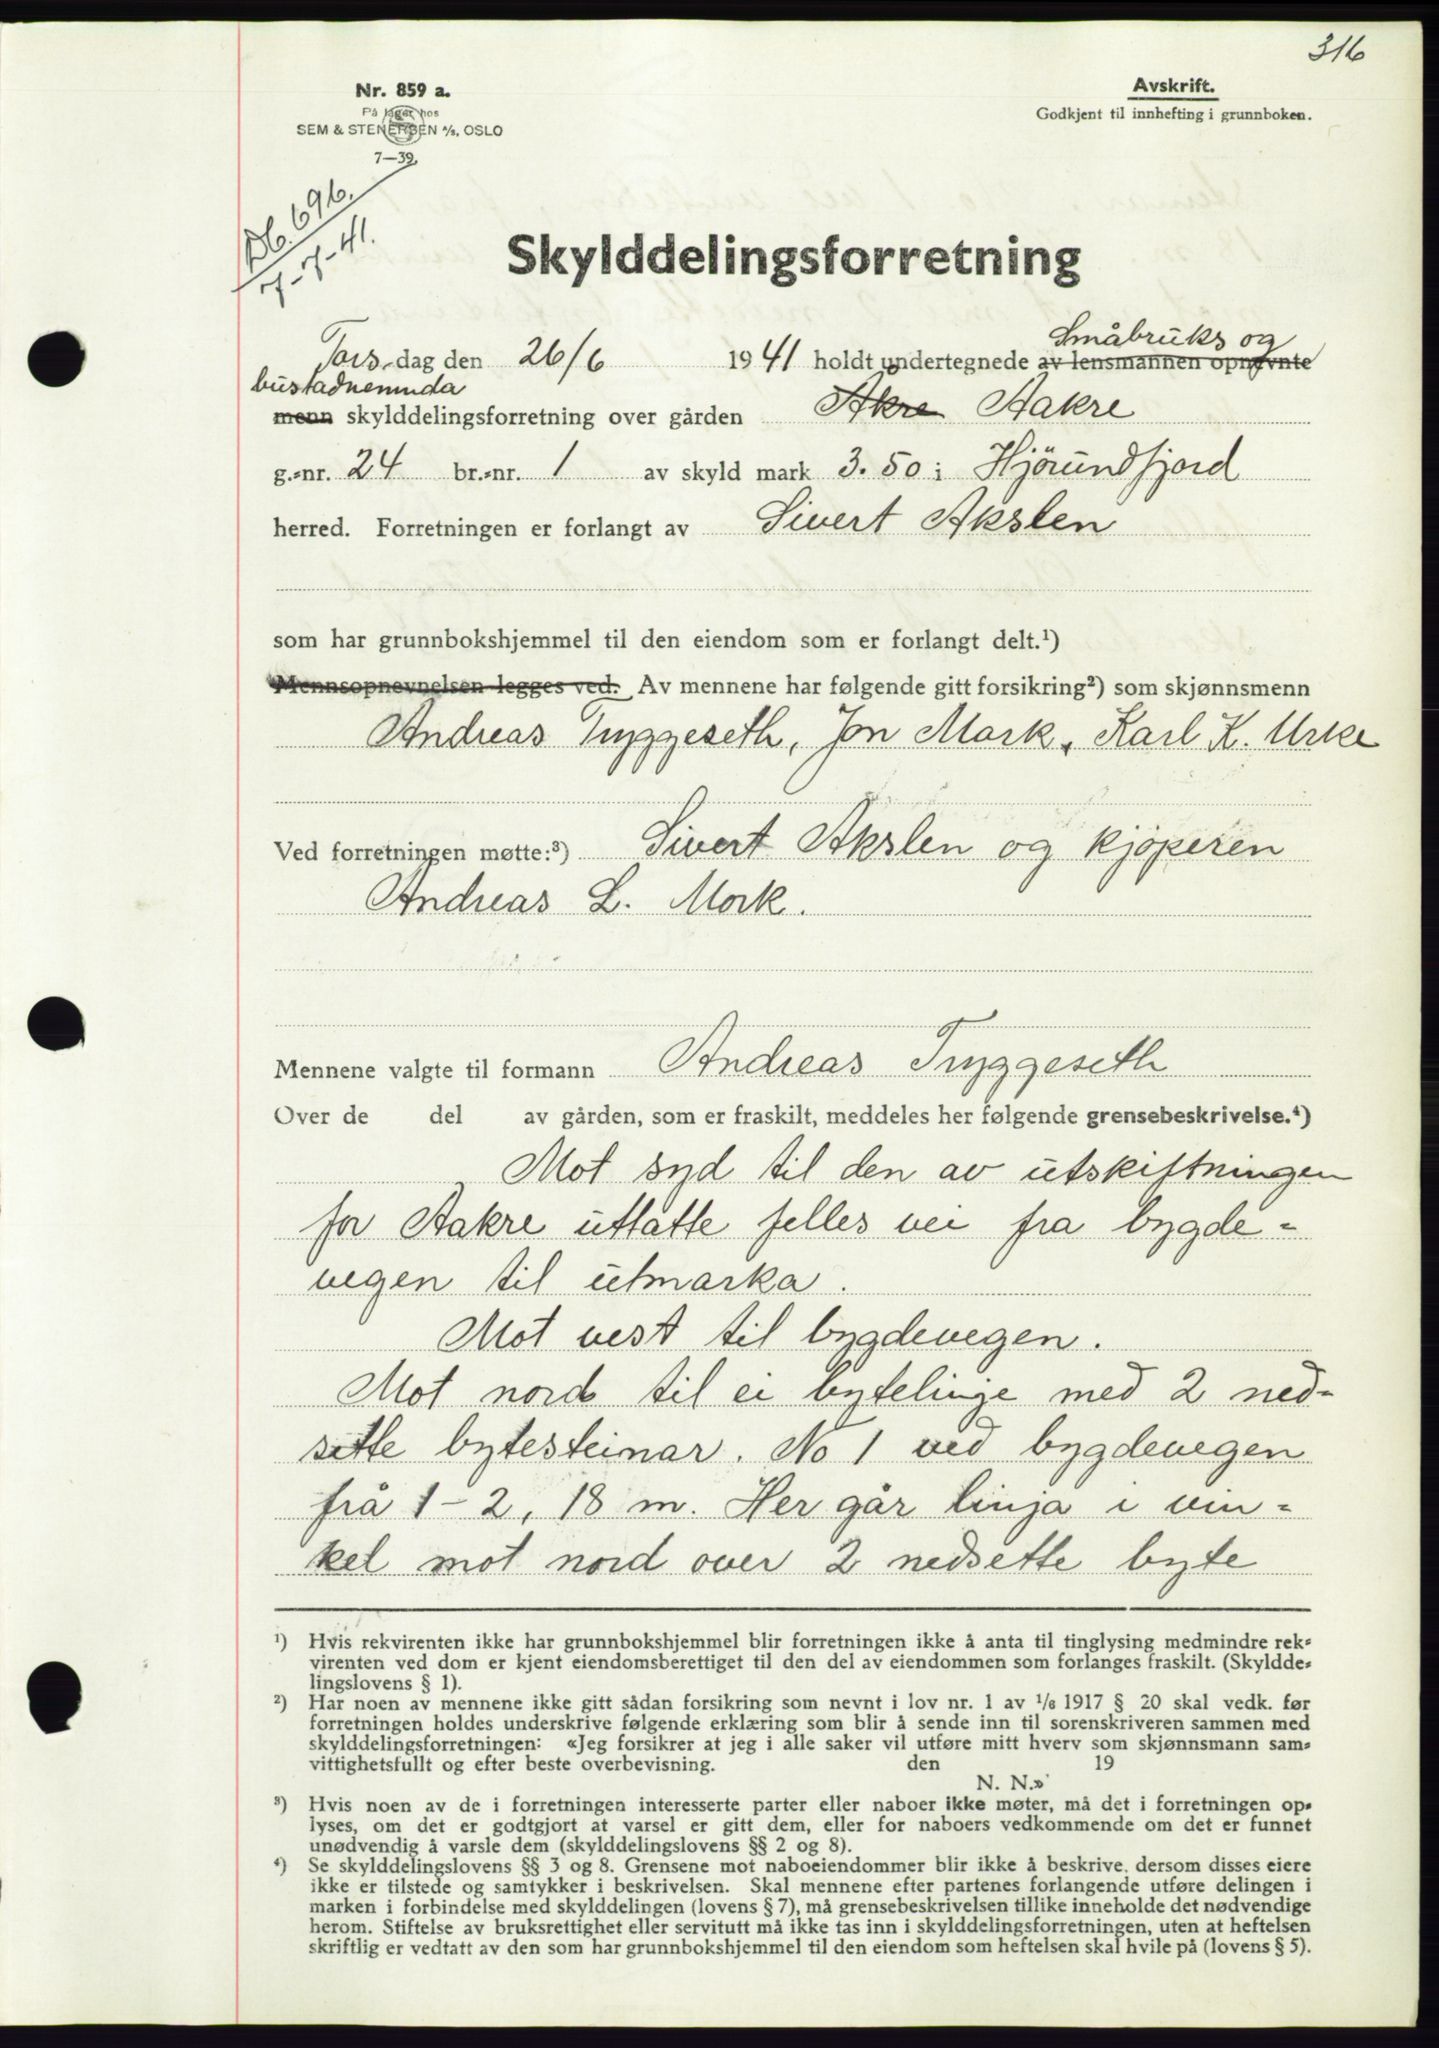 316
Nr. 859 a.
På lager hos
SEM & STENERSEN A/S, OSLO
7—39.
Avskrift.
Godkjent til innhefting i grunnboken.
Db. 696.
7-7-41.
Skylddelingsforretning
Småbruks og
Tors-dag den 26/6 1941 holdt undertegnede av lensmannen opnevnte
bustadnemnda
menn skylddelingsforretning over gården Åkre Aakre
g.-nr. 24 br.-nr. 1 av skyld mark 3.50 i Hjørundfjord
herred. Forretningen er forlangt av Sivert Akslen
som har grunnbokshjemmel til den eiendom som er forlangt delt.¹)
Mennsopnevnelsen legges ved. Av mennene har følgende gitt forsikring²) som skjønnsmenn
Andreas Tryggeseth, Jon Mork, Karl K. Urke
Ved forretningen møtte:³) Sivert Akslen og kjøperen
Andreas L. Mork.
Mennene valgte til formann Andreas Tryggeseth
Over de del av gården, som er fraskilt, meddeles her følgende grensebeskrivelse.⁴)
Mot syd til den av utskiftningen
for Aakre uttatte felles vei fra bygde-
vegen til utmarka.
Mot vest til bygdevegen.
Mot nord til ei bytelinje med 2 ned-
sette bytesteinar. No 1 ved bygdevegen
frå 1-2, 18 m. Her går linja i vin-
kel mot nord over 2 nedsette byte
¹) Hvis rekvirenten ikke har grunnbokshjemmel blir forretningen ikke å anta til tinglysing medmindre rek-
virenten ved dom er kjent eiendomsberettiget til den del av eiendommen som forlanges fraskilt. (Skyldde-
lingslovens § 1).
²) Har noen av mennene ikke gitt sådan forsikring som nevnt i lov nr. 1 av 1/8 1917 § 20 skal vedk. før
forretningen holdes underskrive følgende erklæring som blir å sende inn til sorenskriveren sammen med
skylddelingsforretningen: «Jeg forsikrer at jeg i alle saker vil utføre mitt hverv som skjønnsmann sam-
vittighetsfullt og efter beste overbevisning. den 19
N. N.»
³) Hvis noen av de i forretningen interesserte parter eller naboer ikke møter, må det i forretningen op-
lyses, om det er godtgjort at varsel er gitt dem, eller for naboers vedkommende om det er funnet
unødvendig å varsle dem (skylddelingslovens §§ 2 og 8).
⁴) Se skylddelingslovens §§ 3 og 8. Grensene mot naboeiendommer blir ikke å beskrive, dersom disses eiere
ikke er tilstede og samtykker i beskrivelsen. Skal mennene efter partenes forlangende utføre delingen i
marken i forbindelse med skylddelingen (lovens § 7), må grensebeskrivelsen tillike inneholde det nødvendige
herom. Stiftelse av bruksrettighet eller servitutt må ikke tas inn i skylddelingsforretningen, uten at heftelsen
skriftlig er vedtatt av den som har grunnbokshjemmel til den eiendom som heftelsen skal hvile på (lovens § 5).